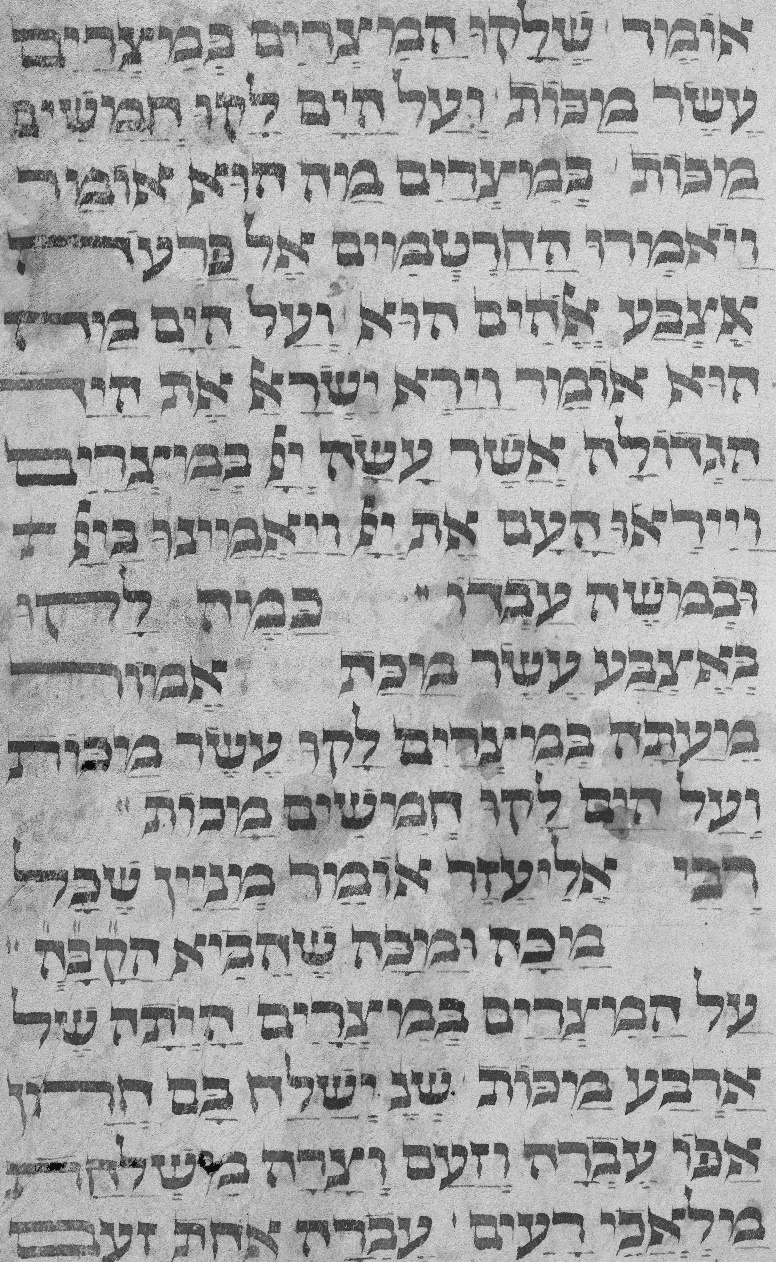 אומר שלקו המצרים במצרים
עשר מכות ועל הים לקו חמשים
מכות במצרים מה הוא אומר
ויאמרו החרטמים אל פרעה
אצבע אלהים הוא ועל הים מה
הוא אומר וירא ישראל את היד
הגדולה אשר עשה יי במצרים
וייראו העם את יי ויאמינו ביי
ובמשה עבדו כמה לקו
באצבע עשר מכת אמור
מעתה במצרים לקו עשר מכות
ועל הים לקו חמישים מכות
רבי אליעזר אומר מניין שכל
מכה ומכה שהביא הקבה
על המצרים במצרים היתה של
ארבע מכות שנ ישלח בם חרון
אפו עברה וזעם וצרה משלחת
מלאכי רעים עברה אחת זעם